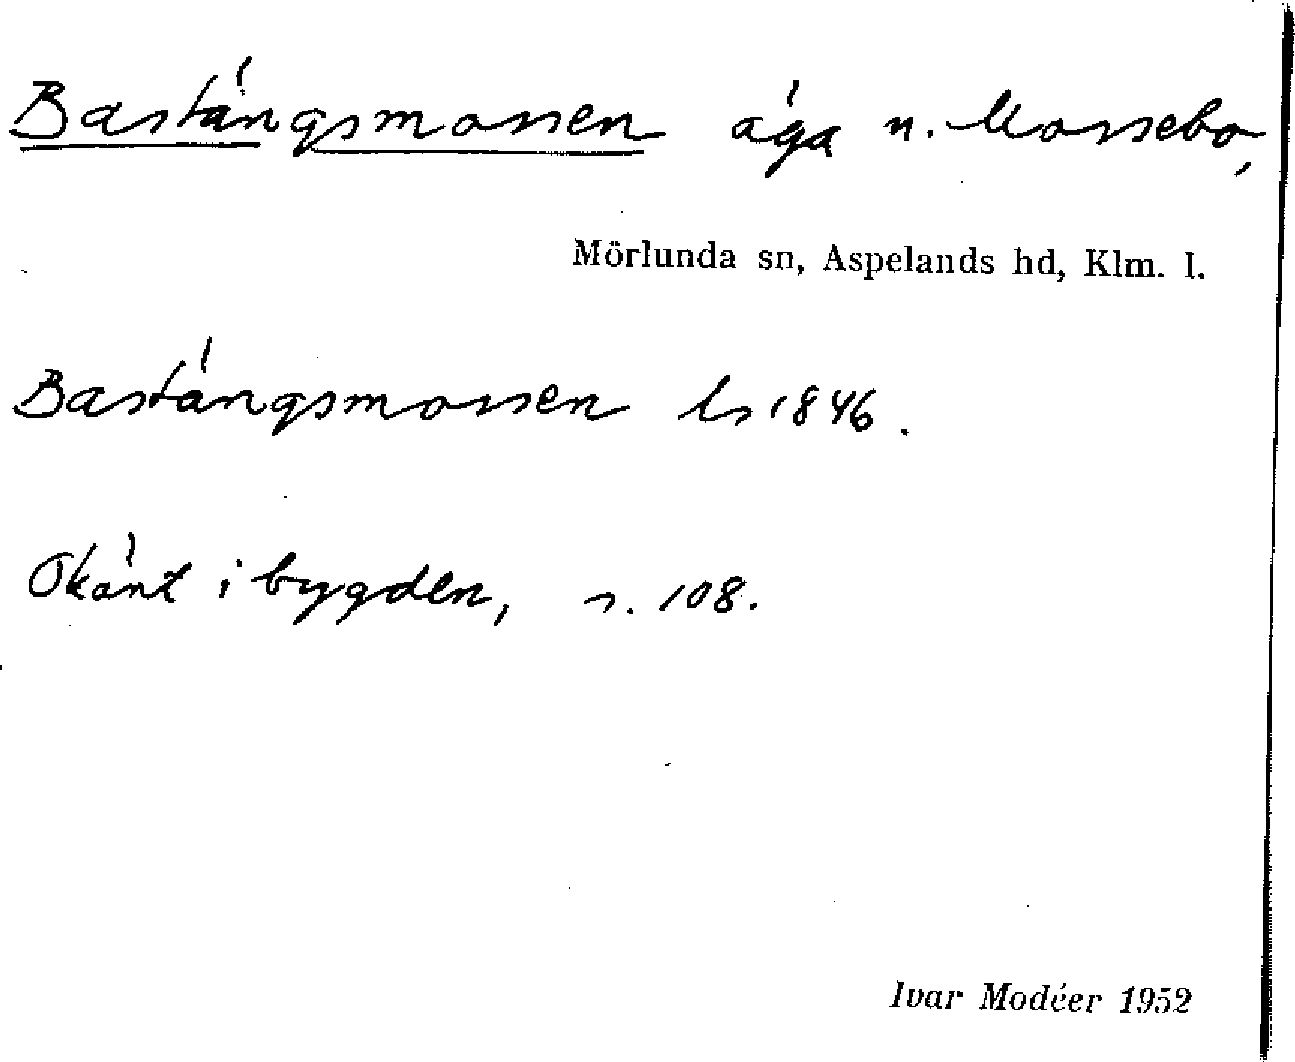 Bastängsmossen äga n. Mossebo,
Mörlunda sn, Aspelands hd, Klm. l.
Bastängsmossen ls 1846.
Okänt i bygden, s. 108.
Ivar Modéer 1952